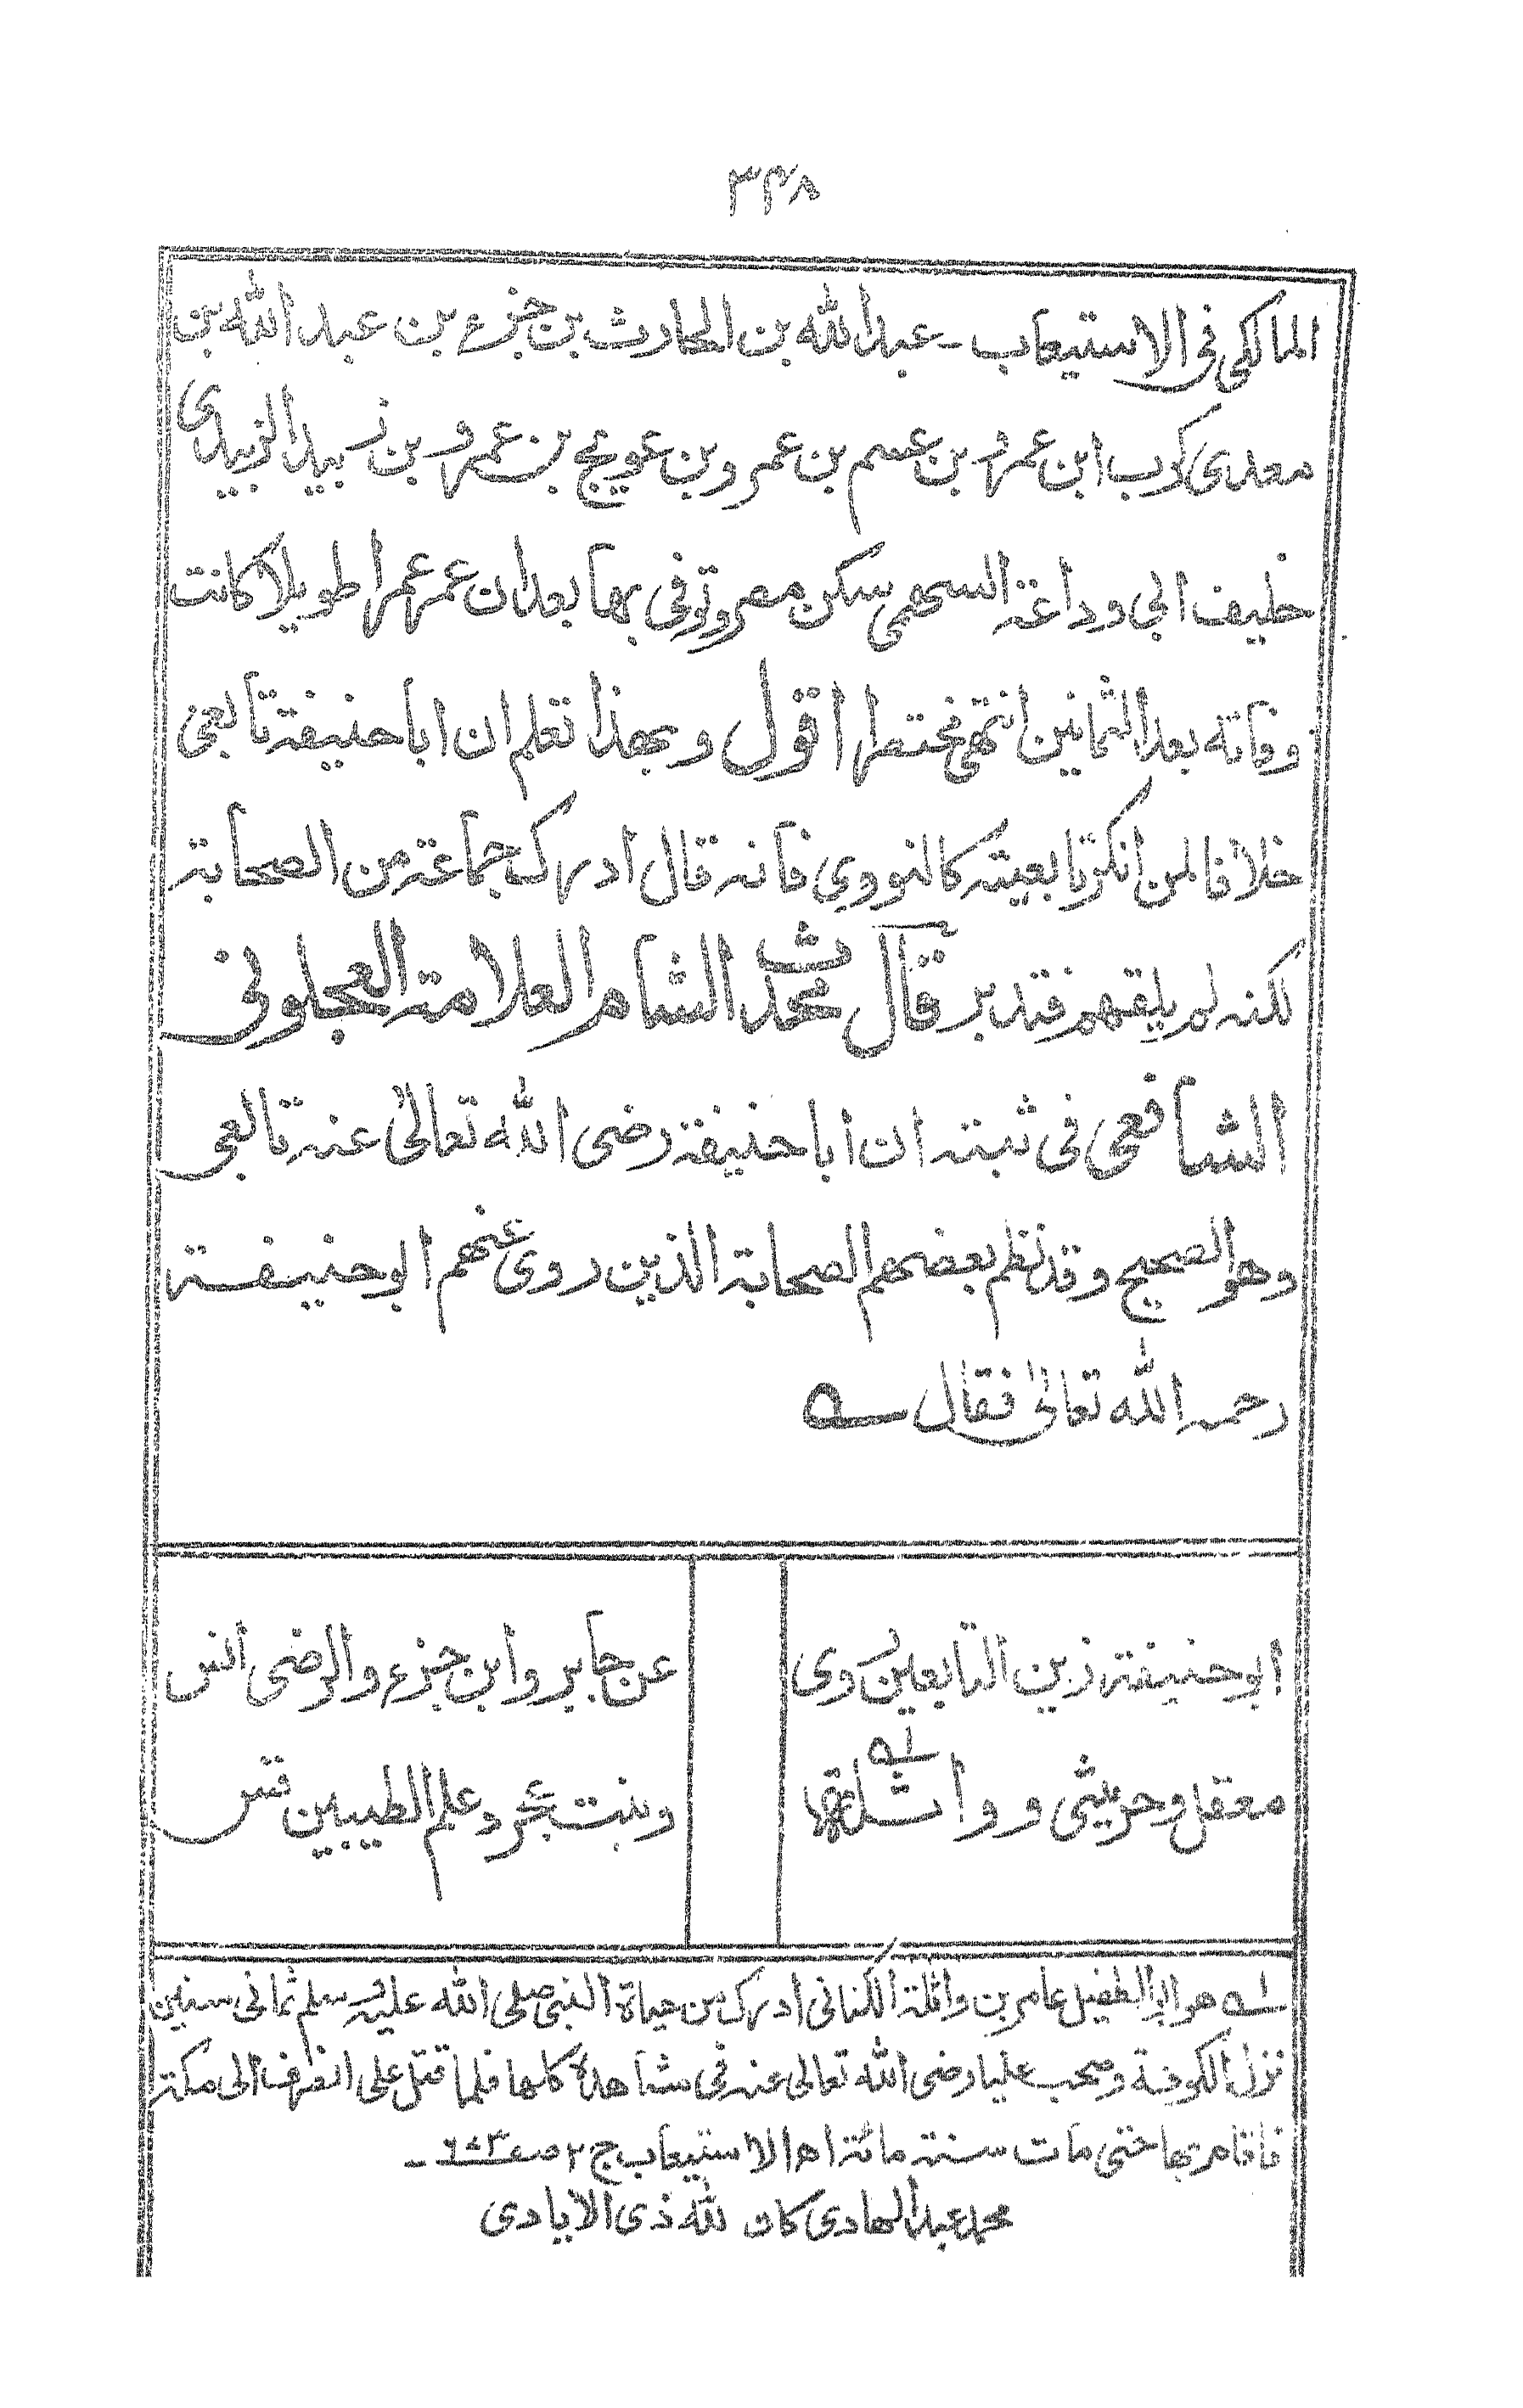 ۳۴۸
المالكى فى الاستيعاب - عبد الله بن الحارث بن جزء بن عبد الله بن
معدى كرب ابن عمرو بن عسم بن عمرو بن عويج بن عمرو بن زبيد الزبيدى
حليف ابى وداعة السهمى سكن مصر وتوفى بها بعد ان عمر عمرا طويلا كانت
وفاته بعد الثمانين انتهى مختصرا اقول وبهذا تعلم ان ابا حنيفة تابعى
خلافا لمن انكر تابعيته كالنووى فانه قال ادرك جماعة من الصحابة
لكنه لم يلقهم فتدبر قال محدث الشام العلامة العجلونى
الشافعى فى ثبته ان ابا حنيفة رضى الله تعالىٰ عنه تابعى
وهو الصحيح وقد نظم بعضهم الصحابة الذين روى عنهم ابو حنيفة
رحمه الله تعالىٰ فقال ؎
ابو حنيفة زين التابعين روى عن جابر وابن جزء والرضى انس
معقل وحريثى وواثلة لہ وبنت عجرد علم الطيبين قس
لہ هو ابو الطفيل عامر بن واثلة الكنانى ادرك من حياة النبى صلى الله عليه وسلم ثمانى سنين
نزل الكوفة وصحب عليا رضى الله تعالى عنه فى مشاهده كلها فلما قتل على انصرف الى مكة
فاقام بها حتى مات سنة مائة اھ الاستيعاب ج ۲ صـ
محمد عبد الهادى كان لله ذى الايادى